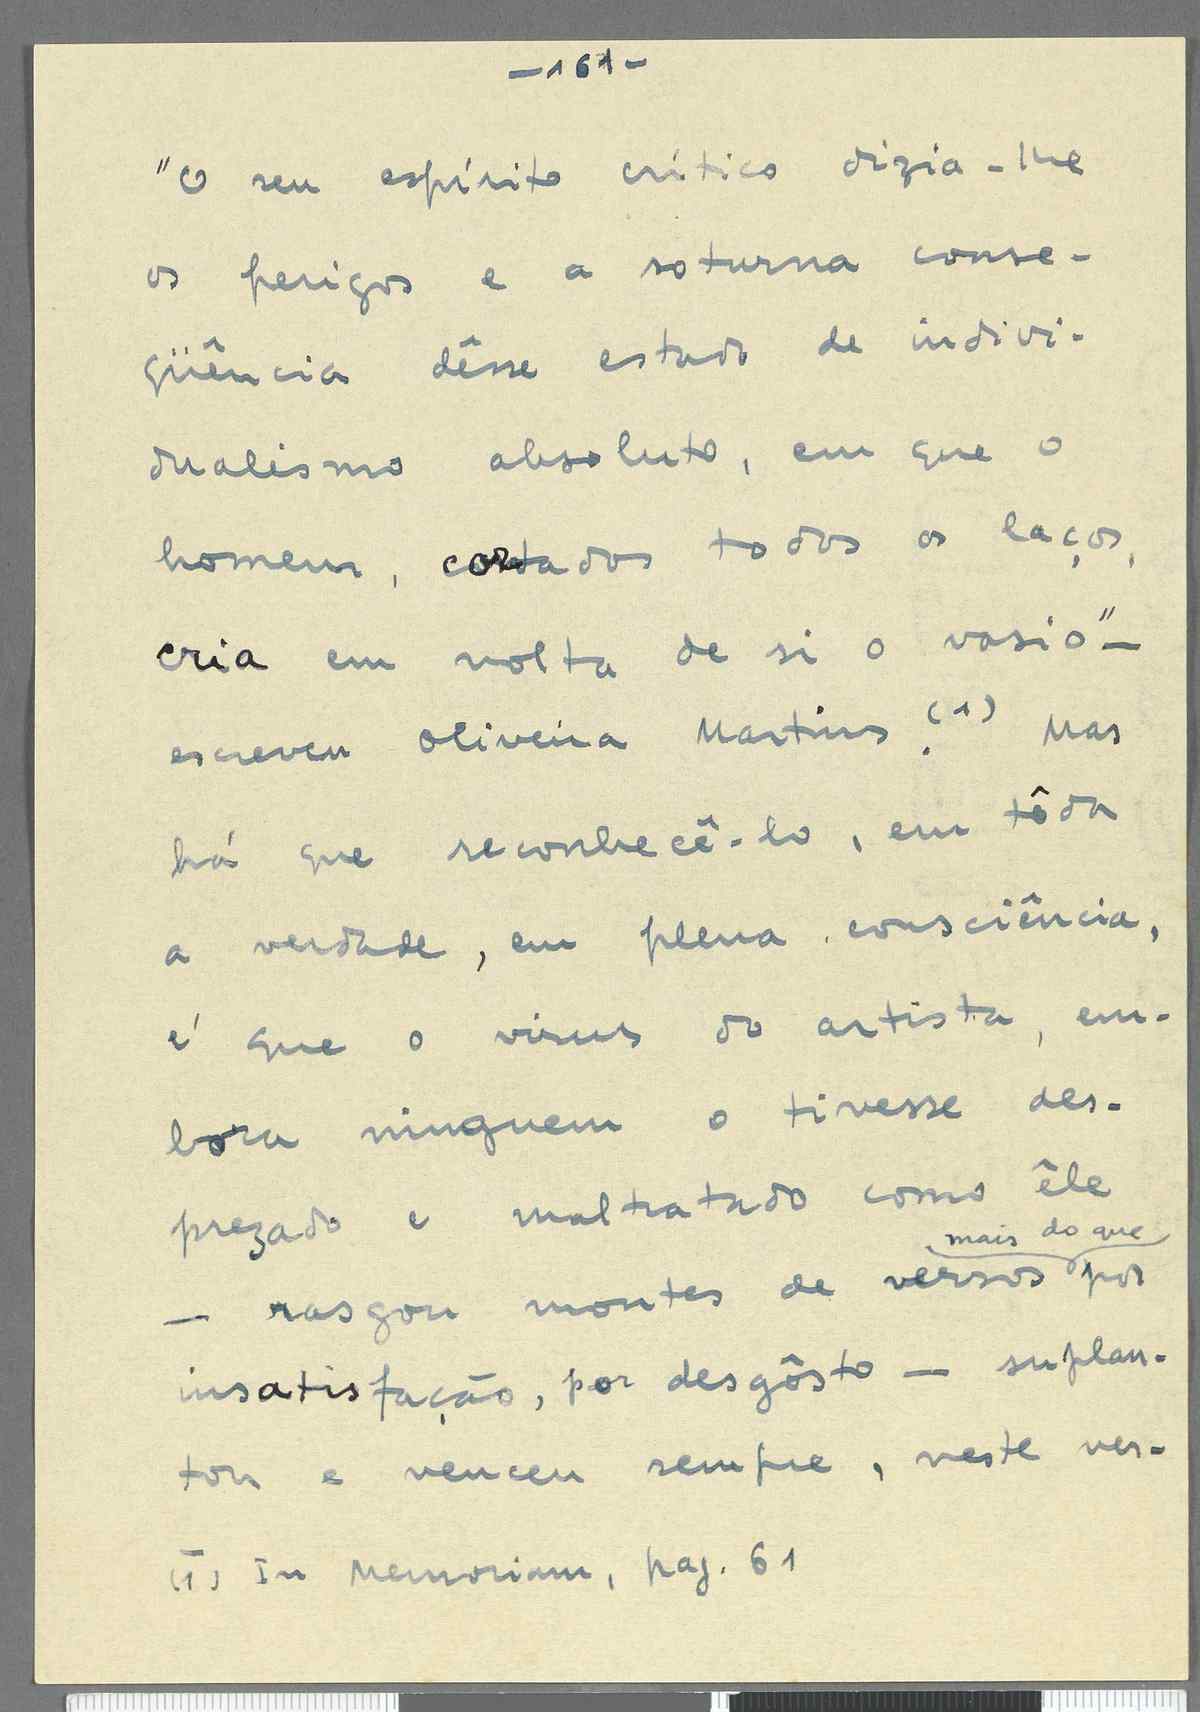 -161-
"O seu espírito crítico dizia-lhe
os perigos e a soturna conse-
qüência dêsse estado de indivi-
dualismo absoluto, em que o
homem, cortados todos os laços,
cria em volta de si o vasio"-
escreveu Oliveira Martins (1). Mas
há que reconhecê-lo, em tôda
a verdade, em plena consciência,
é que o virus do artista, em-
bora ninguem o tivesse des-
prezado e maltratado como êle
mais do que
— rasgou montes de versos por
insatisfação, por desgôsto — suplan-
tou e venceu sempre, neste ver-
(1) In Memoriam, pag. 61